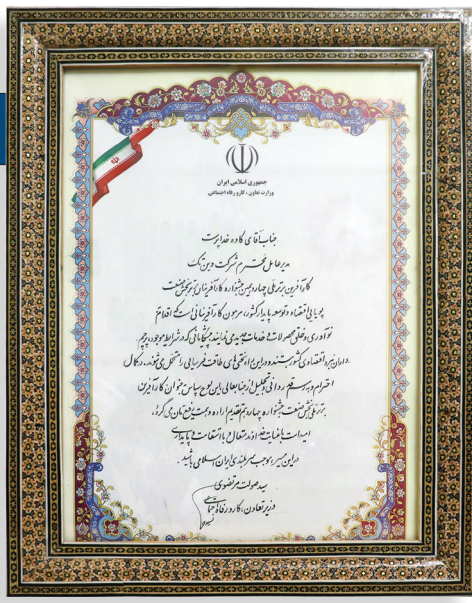 جمهوری اسلامی ایران
وزارت تعاون، کار و رفاه اجتماعی
جناب آقای کاوه خداپرست
مدیرعامل محترم شرکت دین تک
کارآفرین برتر ملی چهاردهمین جشنواره کارآفرینان برتر بخش صنعت
پویایی اقتصاد و توسعه پایدار کشور، مرهون کارآفرینانی است که اقدام
نوآوری و خلق محصولات و خدمات جدید می نمایند پیشگامانی که در شرایط موجود، پرچم
داران نبرد اقتصادی کشور هستند و در این راه سختی های طاقت فرسایی را متحمل می شوند. در کمال
احترام و به رسم قدردانی و تجلیل از جنابعالی، این لوح سپاس به عنوان کارآفرین
برتر ملی بخش صنعت در جشنواره چهاردهم تقدیم اراده و همت رفیعتان می گردد.
امید است با عنایت خداوند متعال و با استقامت و پایداری
در این مسیر، موجب سربلندی ایران اسلامی باشید.
سید صولت مرتضوی
وزیر تعاون، کار و رفاه اجتماعی